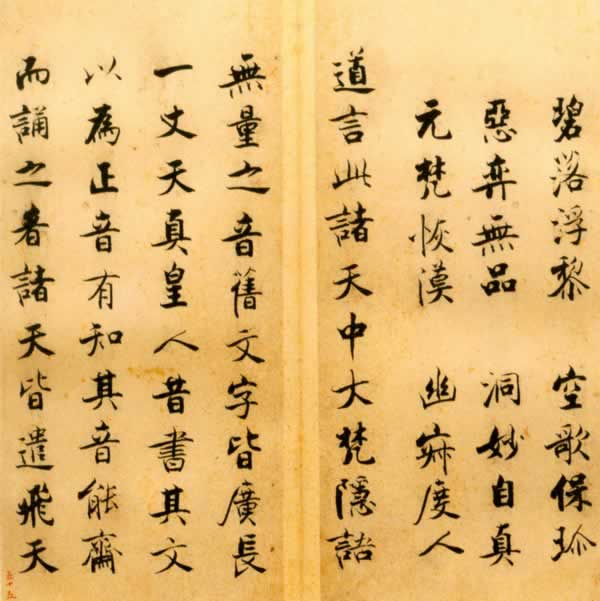 碧落浮黎　空歌保珎
惡弈無品　洞妙自真
元梵恢漠　幽寂度人
道言此諸天中大梵隱語
無量之音舊文字皆廣長
一丈天真皇人昔書其文
以為正音有知其音能齋
而誦之者諸天皆遣飛天